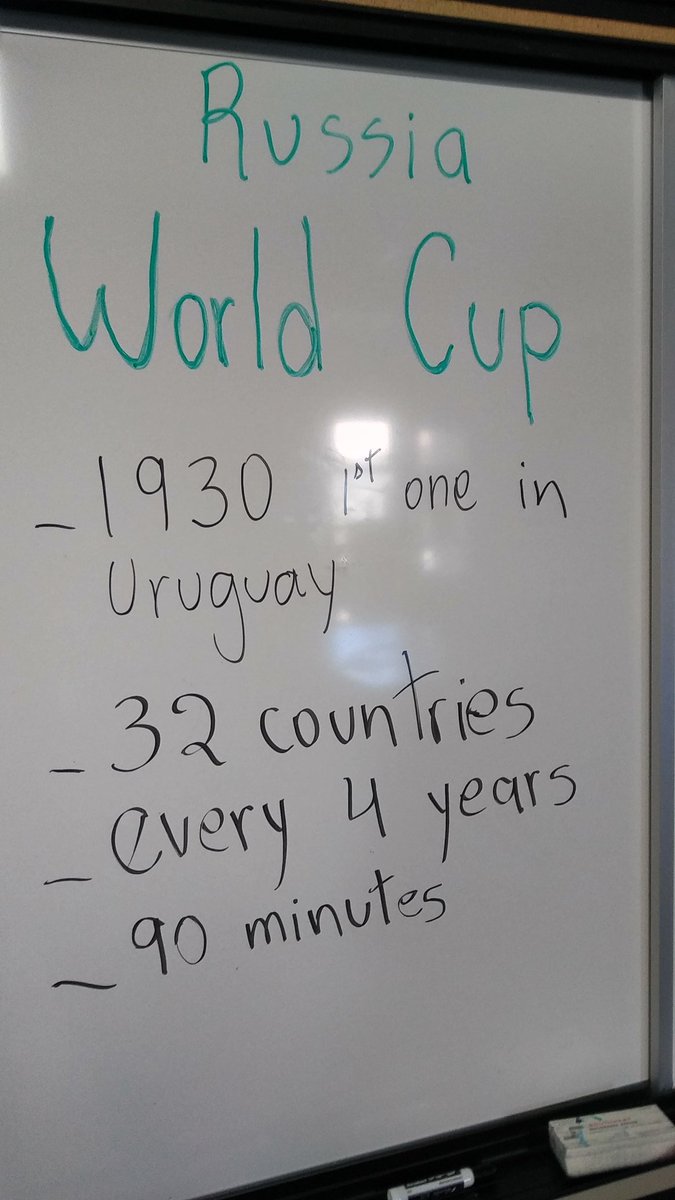 Russia
World Cup
- 1930 1st one in
Uruguay
- 32 countries
- every 4 years
- 90 minutes